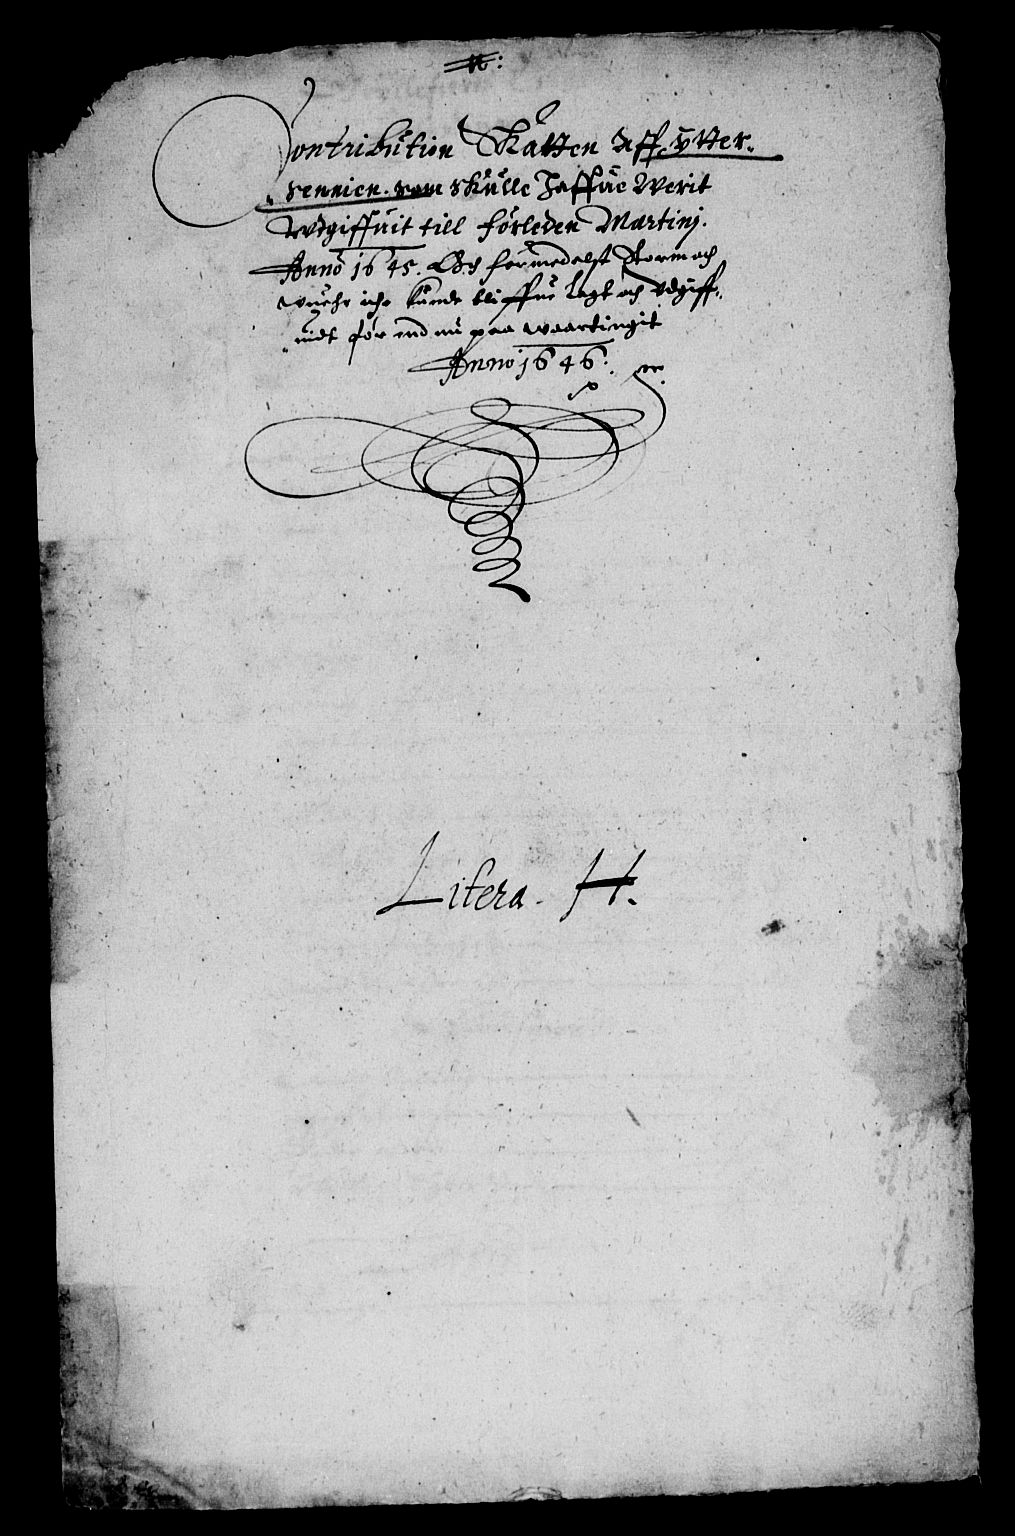 N:
Contribution Skatten Aff ÿtter-
sennien. som skulle Haffue Werit
Wdgiffuit till förleden Martinj.
Anno 1645. Och formedelst Storm och
Wuehr iche kunde bliffue lagt och Vdgiff-
uidt för end nu paa waartingit
Anno 1646.
Litera. H.